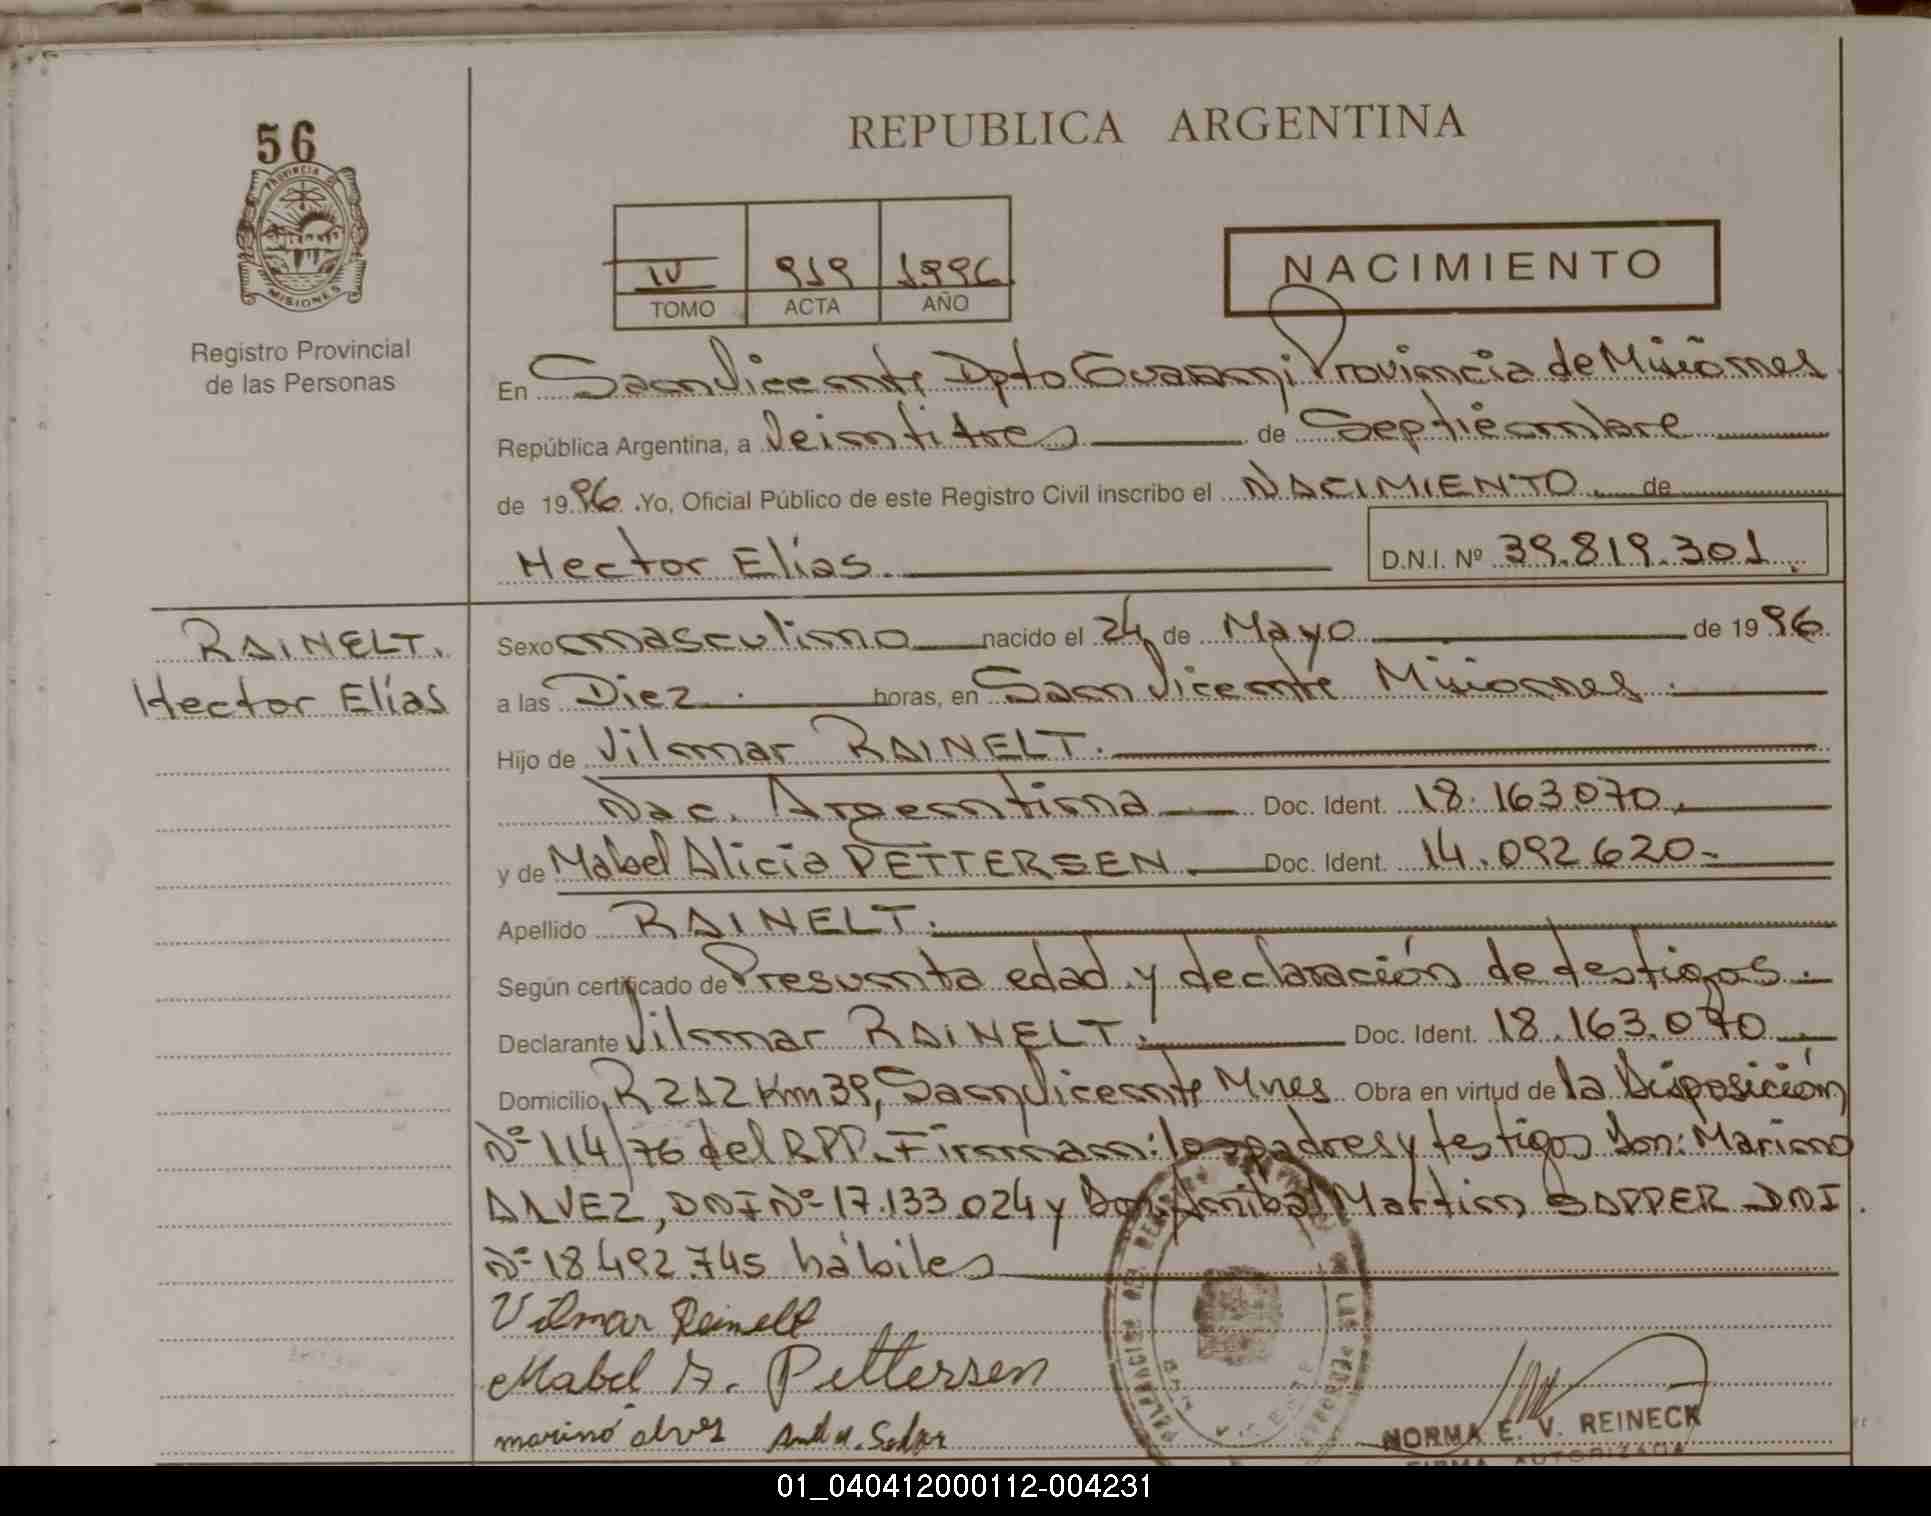 56
PROVINCIA DE
MISIONES
Registro Provincial
de las Personas
REPUBLICA ARGENTINA
IV 919 1.996
TOMO ACTA AÑO
NACIMIENTO
En San Vicente Dpto Guarani Provincia de Misiones
República Argentina, a Veintitres de Septiembre
de 1996 . Yo, Oficial Público de este Registro Civil inscribo el NACIMIENTO de
Hector Elías. D.N.I. Nº 39.819.301.
RAINELT.
Hector Elías
Sexo masculino nacido el 24 de Mayo de 1996.
a las Diez. horas, en San Vicente Misiones.
Hijo de Vilmar RAINELT.
Nac. Argentina Doc. Ident. 18.163.070.
y de Mabel Alicia PETTERSEN. Doc. Ident. 14.092.620-
Apellido RAINELT.
Según certificado de Presunta edad y declaración de testigos.
Declarante Vilmar RAINELT. Doc. Ident. 18.163.070
Domicilio R 212 Km 39, San Vicente Mnes Obra en virtud de la Disposición
Nº 114/76 del RPP. Firman: los padres y testigos Don: Marino
ALVEZ, DNI Nº 17.133.024 y Don: Anibal Martin SAPPER DNI.
Nº 18.492.745 hábiles
Vilmar Reinelt
Mabel A. Pettersen
marino alves
NORMA E. V. REINECK
FIRMA AUTORIZADA
01_040412000112-004231